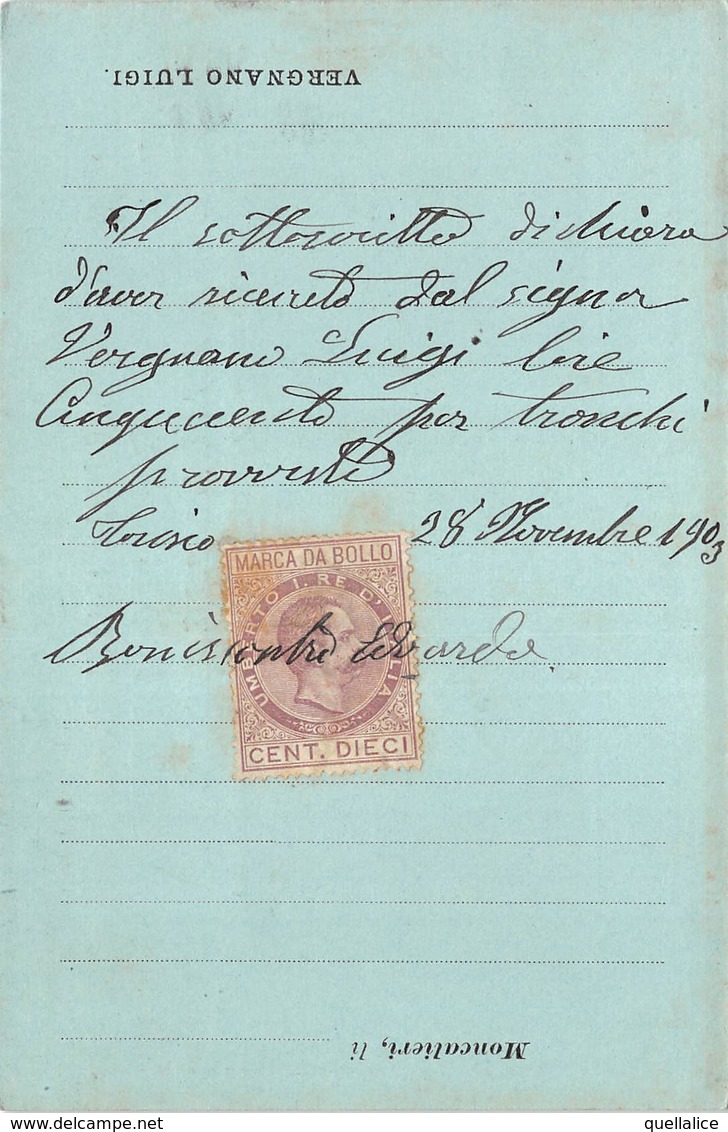 VERGNANO LUIGI.
Il sottoscritto dichiara
d'aver ricevuto dal signor
Vergnano Luigi lire
Cinquecento per tronchi
provvisti
Torino 28 Novembre 1903
MARCA DA BOLLO
UMBERTO I. RE D'ITALIA
CENT. DIECI
Edoardo
Moncalieri, li
quellalice